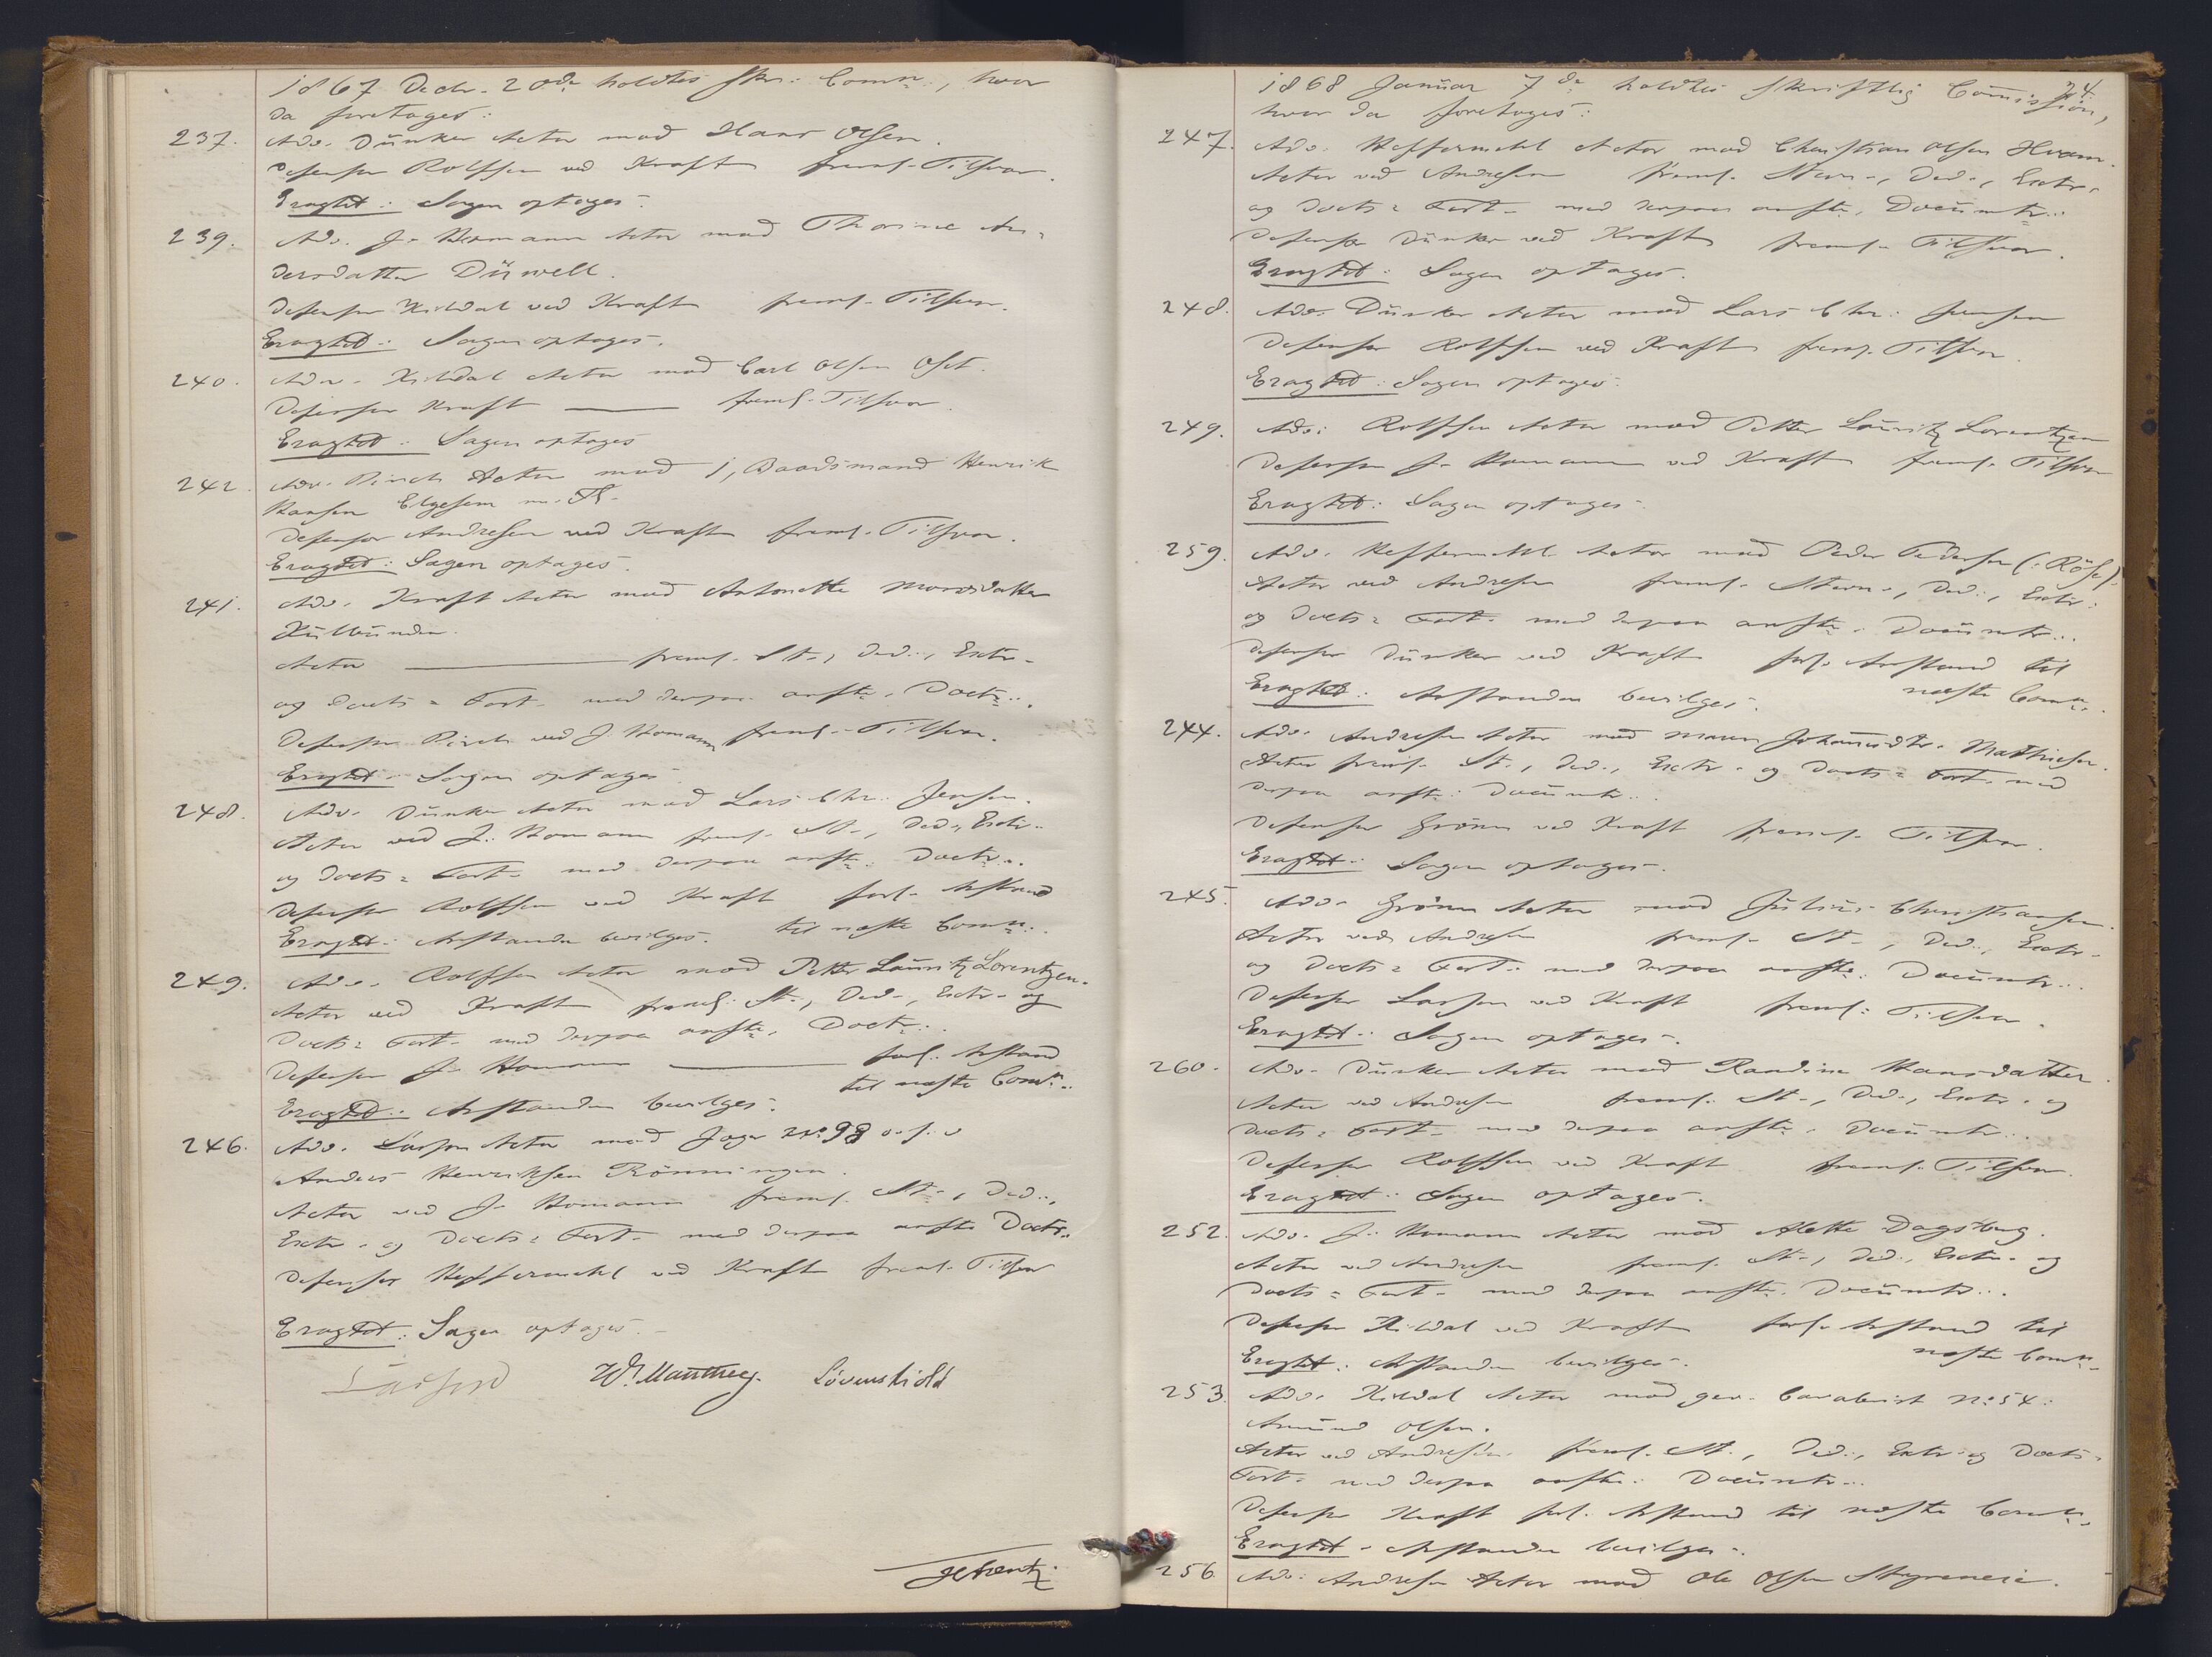 1867 Decbr. 20de holdtes skr: Comn:, hvor
da foretages:
237. Adv. Dünker Actor mod Hans Olsen.
Defensor Rolffsen ved Kraft freml. Tilsvar.
Eragtet: Sagen optages.
239. Adv. J. Homann Actor mod Thorine An-
dersdatter Düwell.
Defensor Kildal ved Kraft freml. Tilsvar.
Eragtet: Sagen optages.
240. Adv. Kildal Actor mod Carl Olsen Oset.
Defensor Kraft — freml. Tilsvar.
Eragtet: Sagen optages
242. Adv. Birch Actor mod 1, Baadsmand Henrik
Hansen Elgesem m. Fl.
Defensor Andresen ved Kraft freml. Tilsvar.
Eragtet: Sagen optages.
241. Adv. Kraft Actor mod Antonette
Actor — freml. St., Ded., Extr.
og Docts = Fort. med derpaa anfte. Doctr..
Defensor Birch ved J. Homann freml. Tilsvar.
Eragtet: Sagen optages
248. Adv. Dünker Actor mod Lars Chr: Jensen.
Actor ved J. Homann freml. St., Ded., Extr.
og Docts = Fort. med derpaa anfte. Doctr..
Defensor Rolffsen ved Kraft forl. Anstand
til næste Comn:.
Eragtet: Anstanden bevilges.
249. Adv. Rolffsen Actor mod Petter Lauritz Lorentzen.
Actor ved Kraft freml. St., Ded., Extr. og
Docts = Fort. med derpaa anfte. Doctr..
Defensor J. Homann — forl. Anstand
til næste Comn:.
Eragtet: Anstanden bevilges.
246. Adv. Larsen Actor mod Jæger No 98
Anders Henriksen Rönningen.
Actor ved J. Homann freml. St., Ded.,
Extr. og Docts = Fort. med derpaa anfte Doctr.
Defensor Heffermehl ved Kraft freml. Tilsvar
Eragtet: Sagen optages.
Lövenskiold
1868 Januar 7de holdtes skriftlig Comission,
hvor da foretages:
247. Adv. Heffermehl Actor mod Christian Olsen Hvam.
Actor ved Andresen freml. Stevn., Ded., Extr.
og Docts = Fort. med derpaa anfte. Documtr..
Defensor Dünker ved Kraft freml. Tilsvar.
Eragtet: Sagen optages.
248. Adv. Dünker Actor mod Lars Chr: Jensen
Defensor Rolffsen ved Kraft freml. Tilsvar.
Eragtet: Sagen optages.
249. Adv: Rolffsen Actor mod Petter Lauritz Lorentzen
Defensor J. Homann ved Kraft freml. Tilsvar
Eragtet: Sagen optages.
259. Adv. Heffermehl Actor mod Peder Pedersen
Actor ved Andresen freml. Stevn., Ded., Extr.
og Docts = Fort. med derpaa anfte. Documtr...
Defensor Dünker ved Kraft forl. Anstand til
næste Comn:.
Eragtet: Anstanden bevilges.
244. Adv. Andresen Actor mod Maren Johannesdtr. Mathiesen.
Actor freml. St., Ded., Extr. og Docts = Fort. med
derpaa anfte: Documtr..
Defensor Grönn ved Kraft freml. Tilsvar.
Eragtet: Sagen optages.
245. Adv. Grönn Actor mod Julius Christiansen.
Actor ved Andresen freml. St., Ded., Extr.
og Docts = Fort. med derpaa anfte: Documtr...
Defensor Larsen ved Kraft freml. Tilsvar.
Eragtet: Sagen optages.
260. Adv. Dünker Actor mod Randine Hansdatter.
Actor ved Andresen freml. St., Ded., Extr. og
Docts = Fort. med derpaa anfte. Documtr..
Defensor Rolffsen ved Kraft freml. Tilsvar.
Eragtet: Sagen optages.
252. Adv. J. Homann Actor mod Alette
Actor ved Andresen freml. St., Ded., Extr. og
Docts = Fort. med derpaa anfte. Documtr...
Defensor Kildal ved Kraft forl. Anstand til
næste Comn:.
Eragtet: Anstanden bevilges.
253. Adv. Kildal Actor mod gev. Cavalerist No 54:
Amund Olsen.
Actor ved Andresen freml. St., Ded., Extr. og Docts =
Fort. med derpaa anfte: Documtr...
Defensor Kraft forl. Anstand til næste Comn:.
Eragtet. Anstanden bevilges.
256. Adv: Andresen Actor mod Ole Olsen